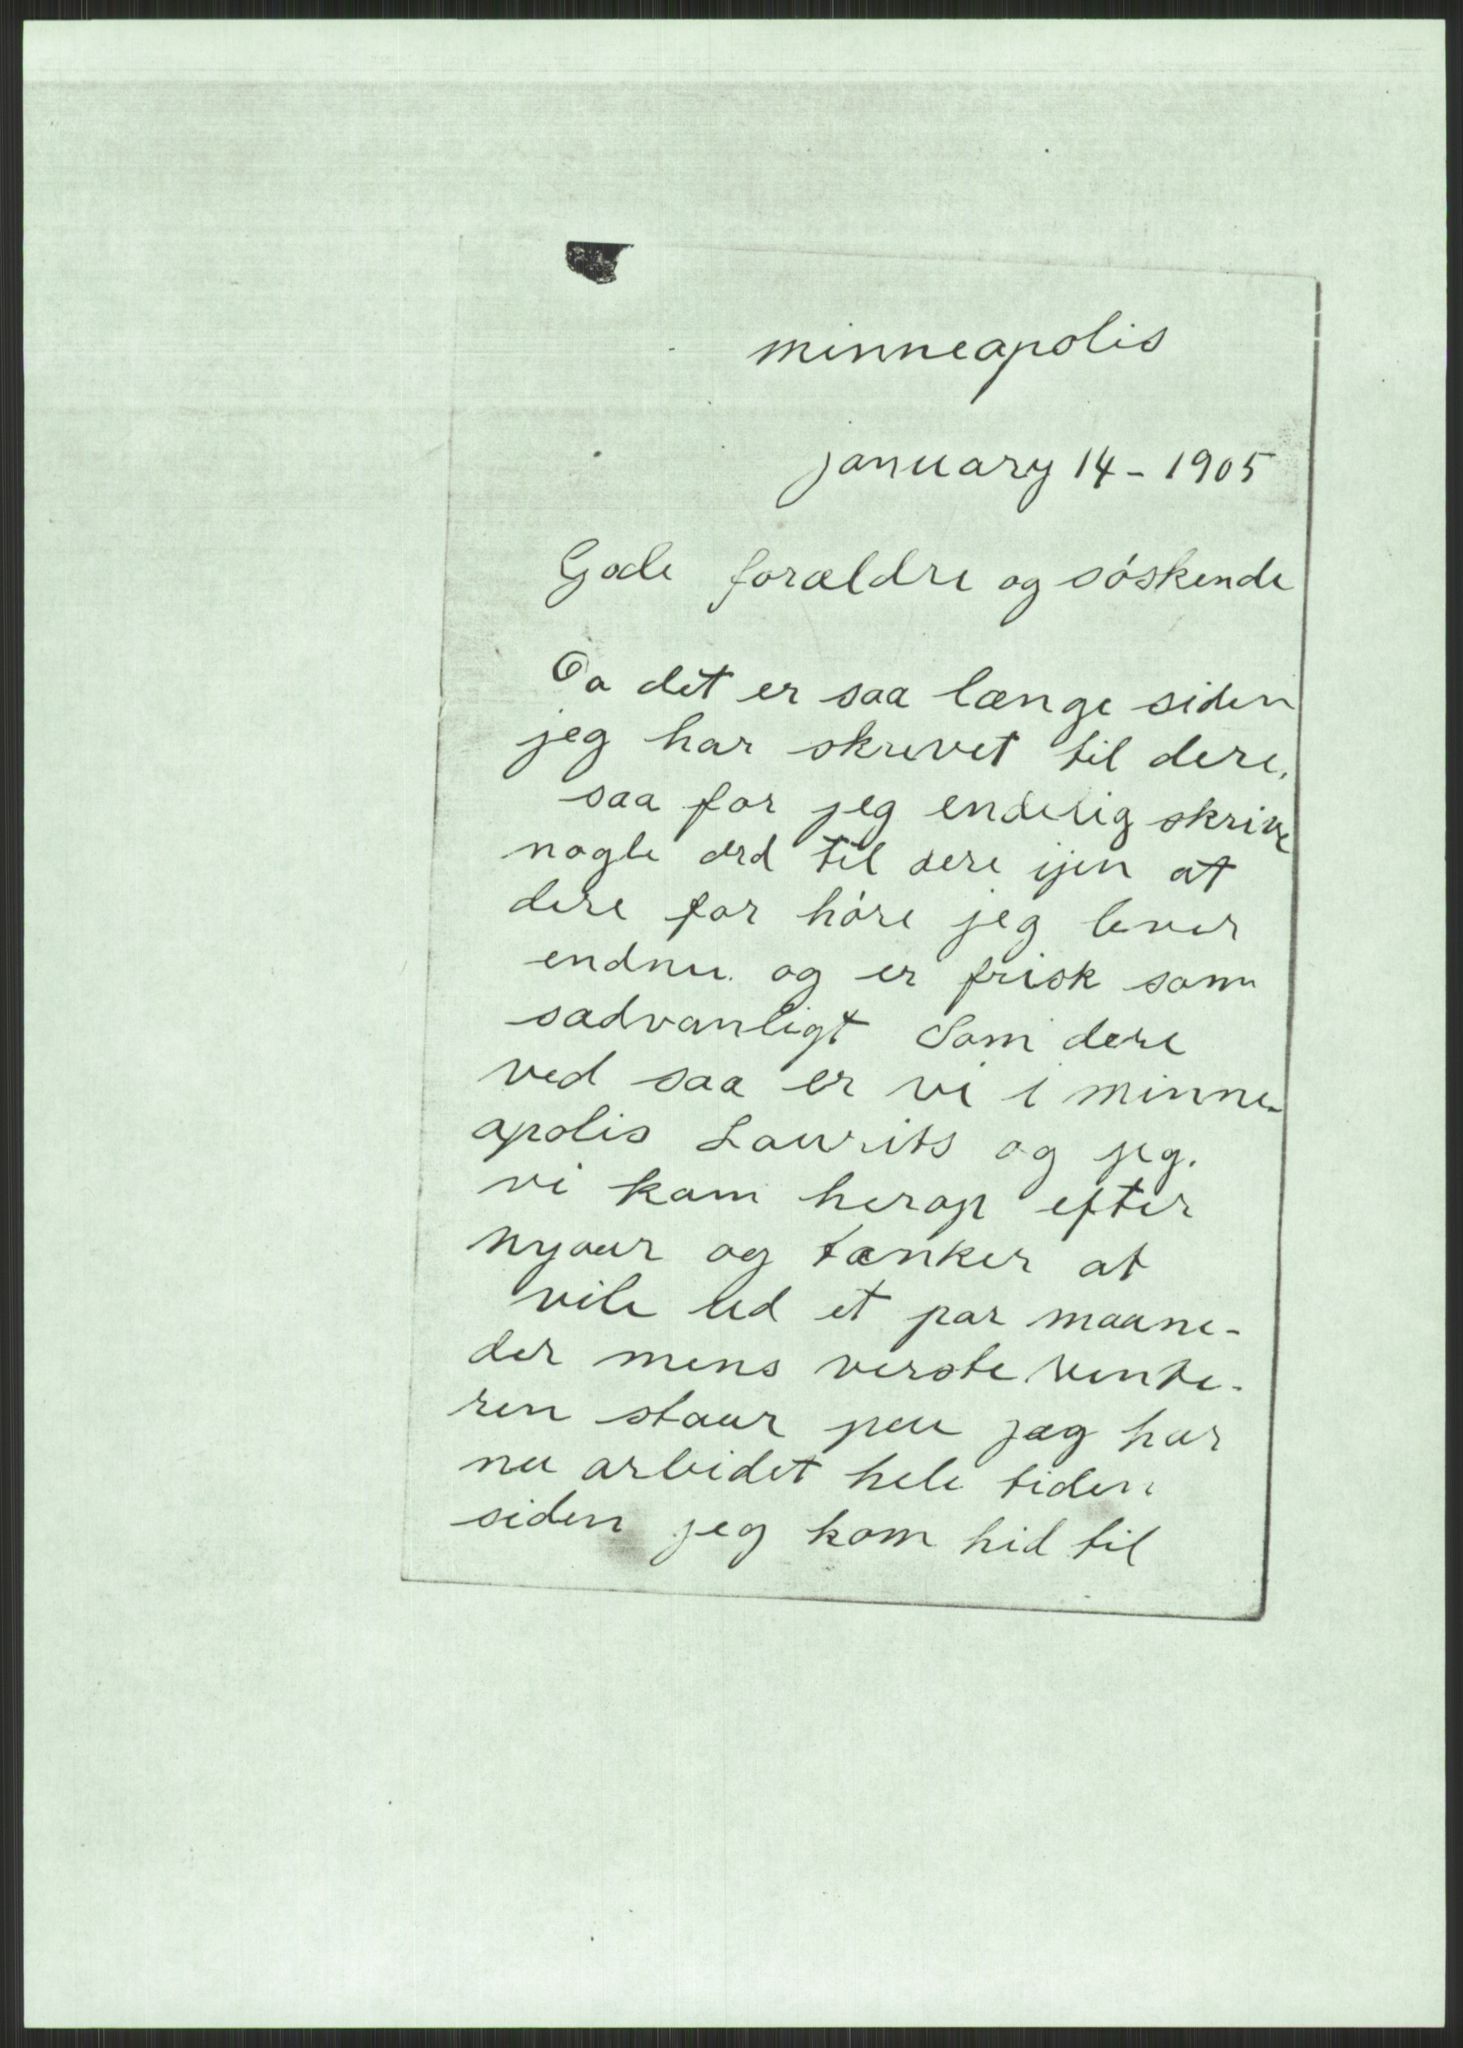 minneapolis
january 14 - 1905
Gode forældre og söskende
Da det er saa længe siden
jeg har skrevet til dere,
saa for jeg endelig skrive
nogle ord til dere ijen at
dere for höre jeg lever
endnu og er frisk som
sadvanligt Som dere
ved saa er vi i minne-
apolis Laurits og jeg.
vi kom herop efter
nyaar og tænker at
vile ud et par maane-
der mens verste vinte-
ren staar paa jeg har
nu arbeidet hele tiden
siden jeg kom hid til